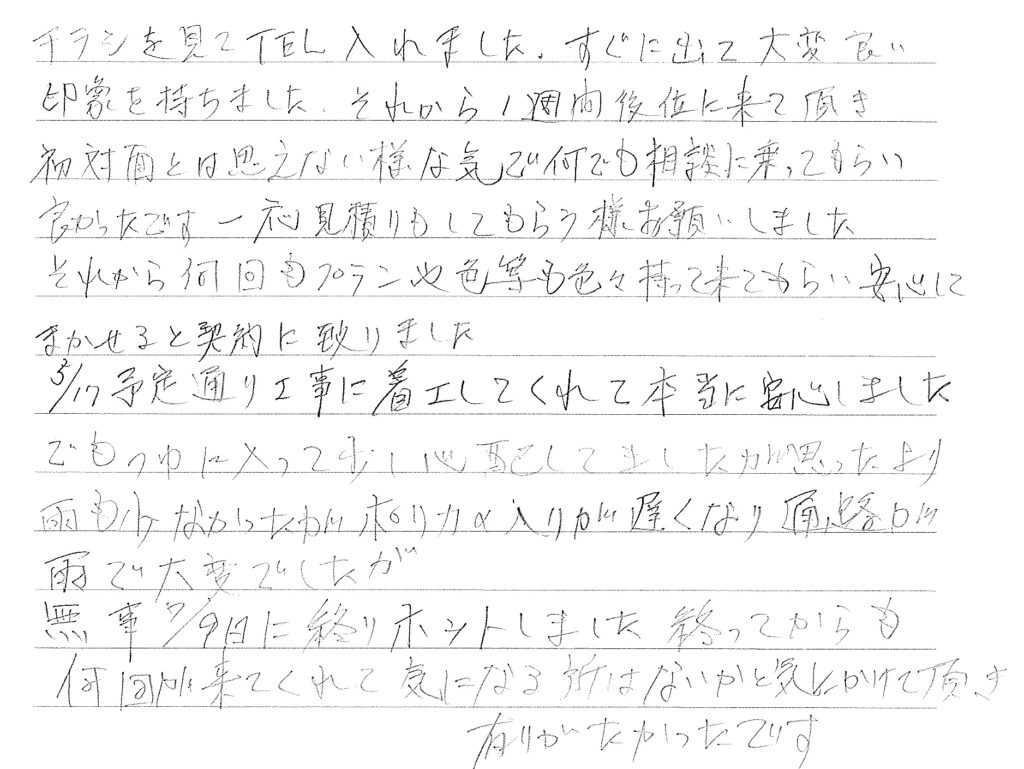 チラシを見てTEL入れました.すぐに出て大変良い
印象を持ちました.それから1週間後位に来て頂き
初対面とは思えない様な気で何でも相談に乗ってもらい
良かったです 一応見積りもしてもらう様お願いしました
それから何回もプランや色等も色々持って来てもらい安心して
まかせると契約に致りました
5/17予定通り工事に着工してくれて本当に安心しました
でもつゆに入って少し心配してましたが思ったより
雨も少なかったがポリカの入りが遅くなり通路が
雨で大変でしたが
無事7/9日に終りホットしました 終ってからも
何回か来てくれて気になる所はないかと気にかけて頂き
有りがたかったです